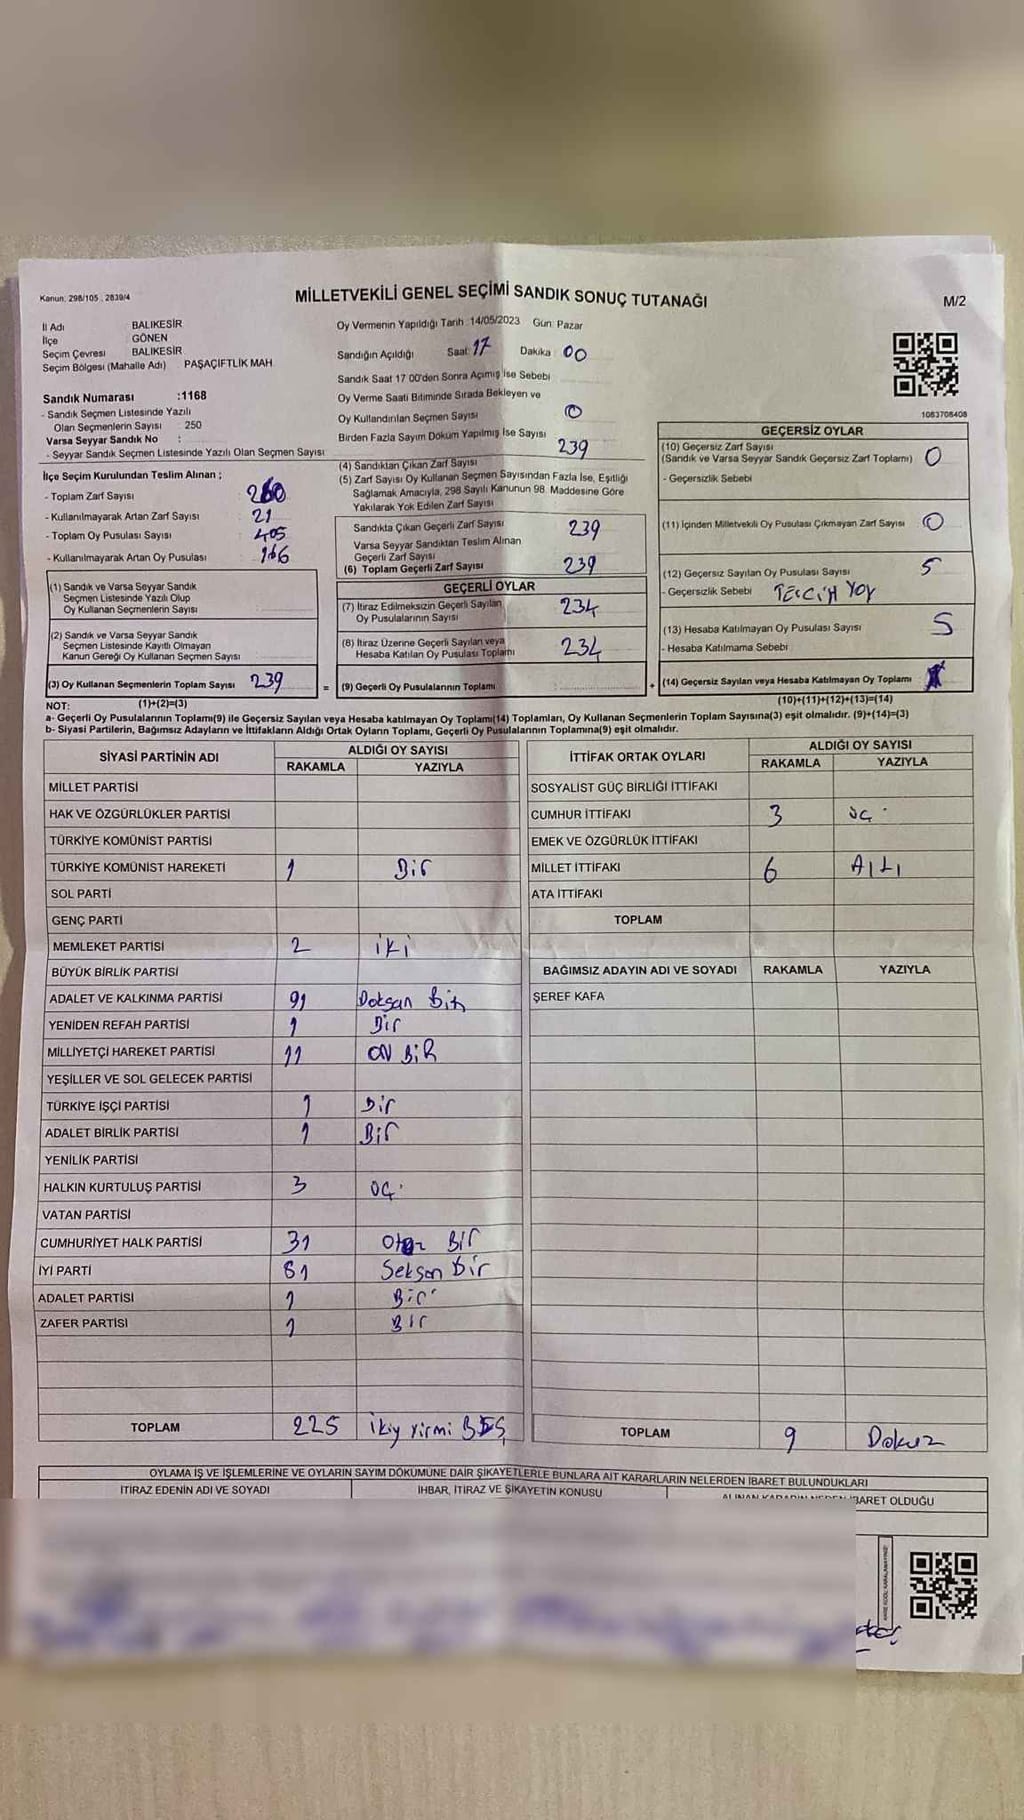 Kanun: 298/105 , 2839/4
MİLLETVEKİLİ GENEL SEÇİMİ SANDIK SONUÇ TUTANAĞI
M/2
İl Adı BALIKESİR
İlçe GÖNEN
Seçim Çevresi BALIKESİR
Seçim Bölgesi (Mahalle Adı) PAŞAÇİFTLİK MAH
Sandık Numarası :1168
- Sandık Seçmen Listesinde Yazılı
Olan Seçmenlerin Sayısı : 250
Varsa Seyyar Sandık No :
- Seyyar Sandık Seçmen Listesinde Yazılı Olan Seçmen Sayısı
İlçe Seçim Kurulundan Teslim Alınan ;
- Toplam Zarf Sayısı 260
- Kullanılmayarak Artan Zarf Sayısı 21
- Toplam Oy Pusulası Sayısı 405
- Kullanılmayarak Artan Oy Pusulası 166
(1) Sandık ve Varsa Seyyar Sandık
Seçmen Listesinde Yazılı Olup
Oy Kullanan Seçmenlerin Sayısı
(2) Sandık ve Varsa Seyyar Sandık
Seçmen Listesinde Kayıtlı Olmayan
Kanun Gereği Oy Kullanan Seçmen Sayısı
(3) Oy Kullanan Seçmenlerin Toplam Sayısı 239
Oy Vermenin Yapıldığı Tarih :14/05/2023 Gün: Pazar
Sandığın Açıldığı Saat: 17 Dakika : 00
Sandık Saat 17 00'den Sonra Açımış İse Sebebi
Oy Verme Saati Bitiminde Sırada Bekleyen ve
Oy Kullandırılan Seçmen Sayısı 0
Birden Fazla Sayım Döküm Yapılmış İse Sayısı
(4) Sandıktan Çıkan Zarf Sayısı 239
(5) Zarf Sayısı Oy Kullanan Seçmen Sayısından Fazla İse, Eşitliği
Sağlamak Amacıyla, 298 Sayılı Kanunun 98. Maddesine Göre
Yakılarak Yok Edilen Zarf Sayısı
Sandıkta Çıkan Geçerli Zarf Sayısı 239
Varsa Seyyar Sandıktan Teslim Alınan
Geçerli Zarf Sayısı
(6) Toplam Geçerli Zarf Sayısı 239
GEÇERLİ OYLAR
(7) İtiraz Edilmeksizin Geçerli Sayılan
Oy Pusulalarının Sayısı 234
(8) İtiraz Üzerine Geçerli Sayılan veya
Hesaba Katılan Oy Pusulası Toplamı 234
= (9) Geçerli Oy Pusulalarının Toplamı +
1083708408
GEÇERSİZ OYLAR
(10) Geçersiz Zarf Sayısı
(Sandık ve Varsa Seyyar Sandık Geçersiz Zarf Toplamı) 0
- Geçersizlik Sebebi
(11) İçinden Milletvekili Oy Pusulası Çıkmayan Zarf Sayısı 0
(12) Geçersiz Sayılan Oy Pusulası Sayısı 5
- Geçersizlik Sebebi TERCİH YOK
(13) Hesaba Katılmayan Oy Pusulası Sayısı 5
- Hesaba Katılmama Sebebi
(14) Geçersiz Sayılan veya Hesaba Katılmayan Oy Toplamı
NOT: (1)+(2)=(3) (10)+(11)+(12)+(13)=(14)
a- Geçerli Oy Pusulalarının Toplamı(9) ile Geçersiz Sayılan veya Hesaba katılmayan Oy Toplamı(14) Toplamları, Oy Kullanan Seçmenlerin Toplam Sayısına(3) eşit olmalıdır. (9)+(14)=(3)
b- Siyasi Partilerin, Bağımsız Adayların ve İttifakların Aldığı Ortak Oyların Toplamı, Geçerli Oy Pusulalarının Toplamına(9) eşit olmalıdır.
SİYASİ PARTİNİN ADI ALDIĞI OY SAYISI
RAKAMLA YAZIYLA
MİLLET PARTİSİ
HAK VE ÖZGÜRLÜKLER PARTİSİ
TÜRKİYE KOMÜNİST PARTİSİ
TÜRKİYE KOMÜNİST HAREKETİ 1 Bir
SOL PARTİ
GENÇ PARTİ
MEMLEKET PARTİSİ 2 iki
BÜYÜK BİRLİK PARTİSİ
ADALET VE KALKINMA PARTİSİ 91 Doksan Bir
YENİDEN REFAH PARTİSİ 1 Bir
MİLLİYETÇİ HAREKET PARTİSİ 11 ON BİR
YEŞİLLER VE SOL GELECEK PARTİSİ
TÜRKİYE İŞÇİ PARTİSİ 1 Bir
ADALET BİRLİK PARTİSİ 1 Bir
YENİLİK PARTİSİ
HALKIN KURTULUŞ PARTİSİ 3 üç
VATAN PARTİSİ
CUMHURİYET HALK PARTİSİ 31 Otuz Bir
İYİ PARTİ 81 Seksen Bir
ADALET PARTİSİ 1 Bir
ZAFER PARTİSİ 1 Bir
TOPLAM 225 ikiy yirmi BEŞ
İTTİFAK ORTAK OYLARI ALDIĞI OY SAYISI
RAKAMLA YAZIYLA
SOSYALİST GÜÇ BİRLİĞİ İTTİFAKI
CUMHUR İTTİFAKI 3 üç
EMEK VE ÖZGÜRLÜK İTTİFAKI
MİLLET İTTİFAKI 6 Altı
ATA İTTİFAKI
TOPLAM
BAĞIMSIZ ADAYIN ADI VE SOYADI RAKAMLA YAZIYLA
ŞEREF KAFA
TOPLAM 9 Dokuz
OYLAMA İŞ VE İŞLEMLERİNE VE OYLARIN SAYIM DÖKÜMÜNE DAİR ŞİKAYETLERLE BUNLARA AİT KARARLARIN NELERDEN İBARET BULUNDUKLARI
İTİRAZ EDENİN ADI VE SOYADI İHBAR, İTİRAZ VE ŞİKAYETİN KONUSU
İBARET OLDUĞU